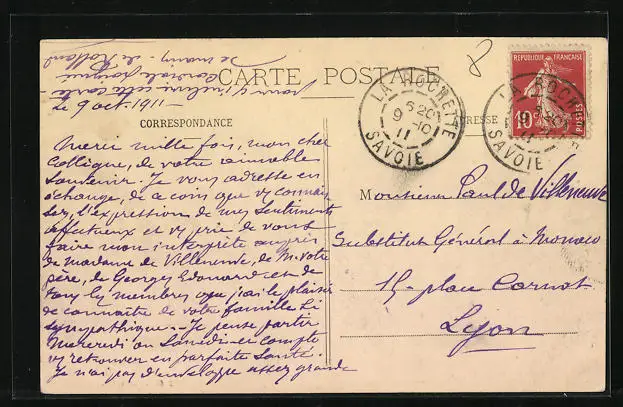 8
CARTE POSTALE
CORRESPONDANCE
ADRESSE
LA ROCHETTE
6 20
9 10
11
SAVOIE
REPUBLIQUE FRANÇAISE
10c
POSTES
LA ROCHETTE
SAVOIE
le 9 oct. 1911 –
Merci mille fois, mon cher
collègue, de votre aimable
souvenir. Je vous adresse en
échange, de ce coin que vs connais
sez, l'expression de mes sentiments
affectueux et vs prie de vous
faire mon interprète auprès
de madame de Villeneuve, de M. votre
père, de Georges Edouard et de
tous les membres que j'ai le plaisir
de connaitre de votre famille si
sympathique. – Je pense partir
Mercredi ou Samedi et compte
vs retrouver en parfaite santé.
Je n'ai pas d'enveloppe assez grande
pour y inclure cette carte
Cordiale poignée
de main – de Rolland
Monsieur Paul de Villeneuve
Substitut Général à Monaco
15 – place Carnot
Lyon